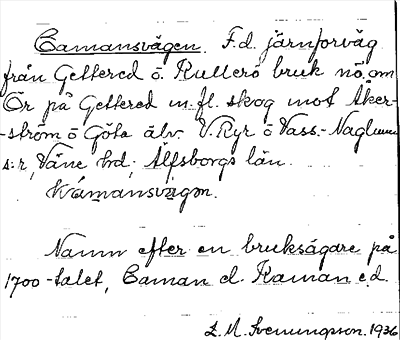 Camansvägen. F.d. järnforväg
från Gettered o. Kullerö bruk nö om
Ör på Gettered m.fl. skog mot Åker-
-ström o Göta älv. V. Ryr o Vass.-Naglum
s:r, Väne hd; Älfsborgs län.
Kámansvägen.
Namn efter en bruksägare på
1700-talet, Caman el. Kaman e.d.
L. M. Svenungson. 1936